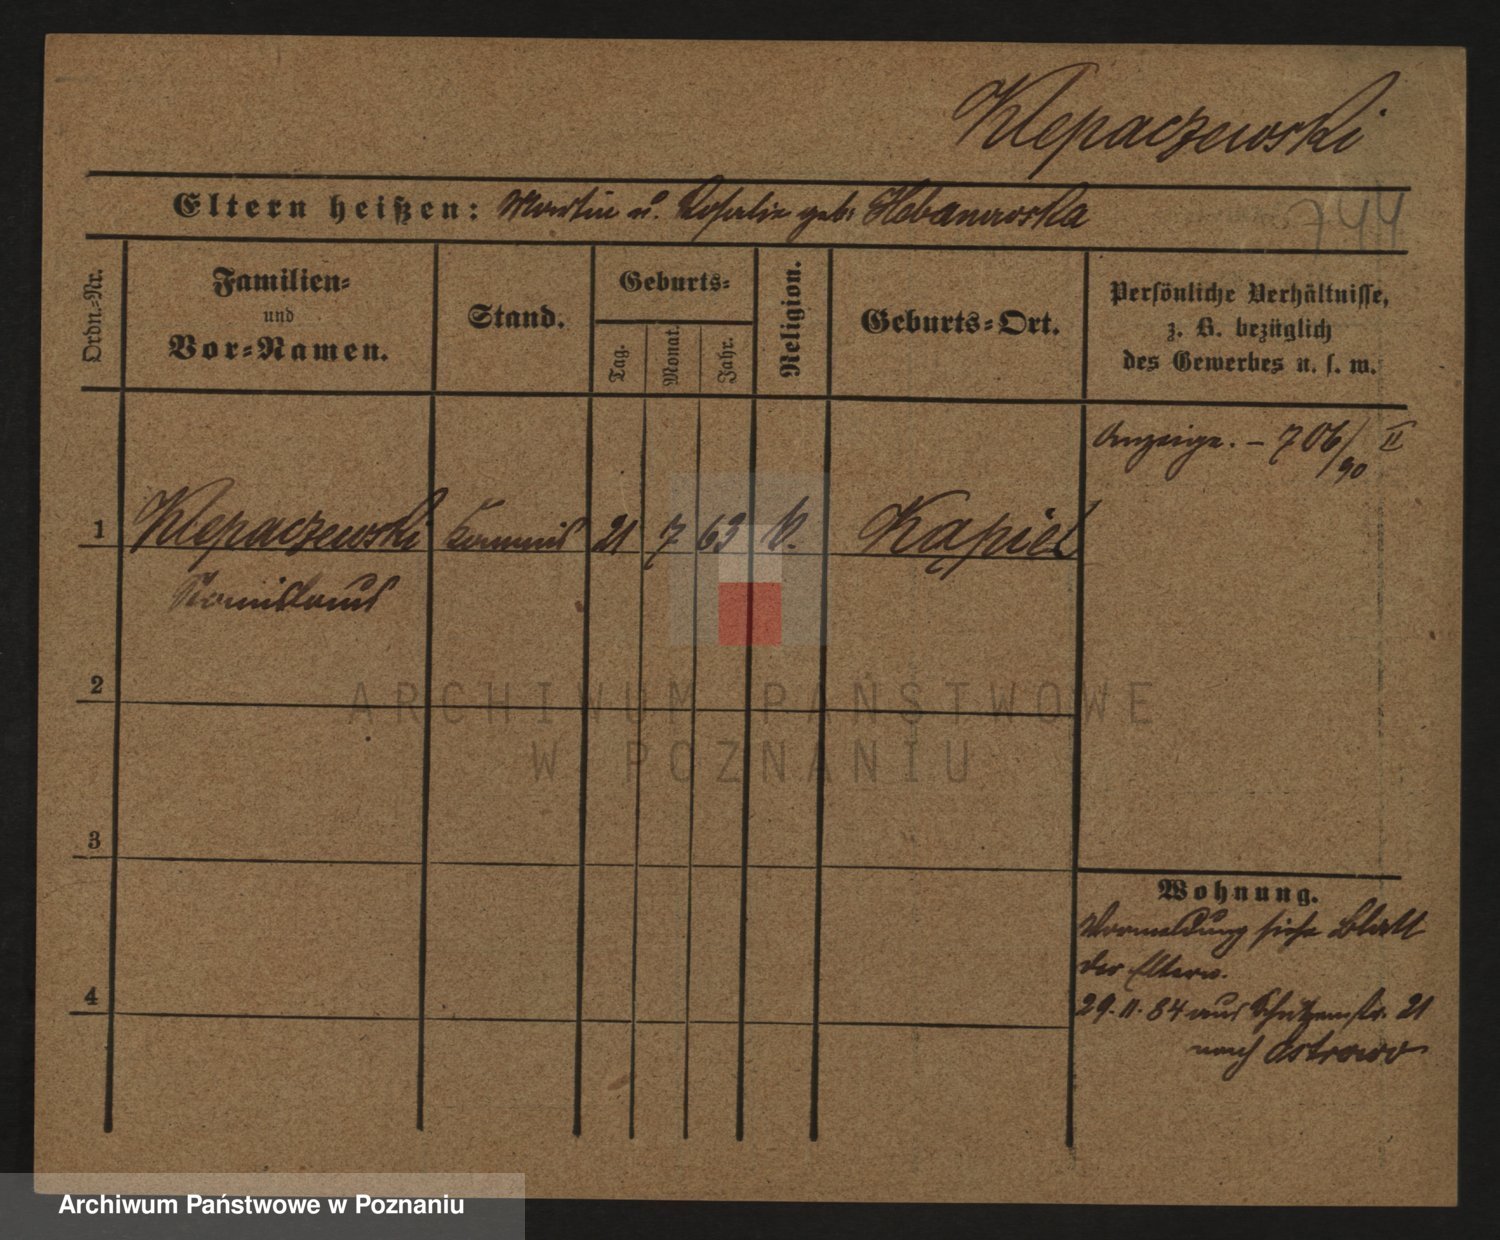 Klepaczewski
Eltern heißen: Martin u. Rosalie geb. Hebanowska
744
Ordn.-Nr.
Familien-
und
Vor-Namen.
Stand.
Geburts-
Tag.
Monat.
Jahr.
Religion.
Geburts-Ort.
Persönliche Verhältnisse,
z. B. bezüglich
des Gewerbes u. s. w.
Anzeige. - 706/90 II
1 Klepaczewski Commis 21 7 63 k. Kapiel
Stanislaus
2
3
4
Wohnung.
Vormeldung siehe Blatt
der Eltern.
29.11.84 aus Schützenstr. 21
nach Ostrowo
ARCHIWUM PAŃSTWOWE
W POZNANIU
Archiwum Państwowe w Poznaniu